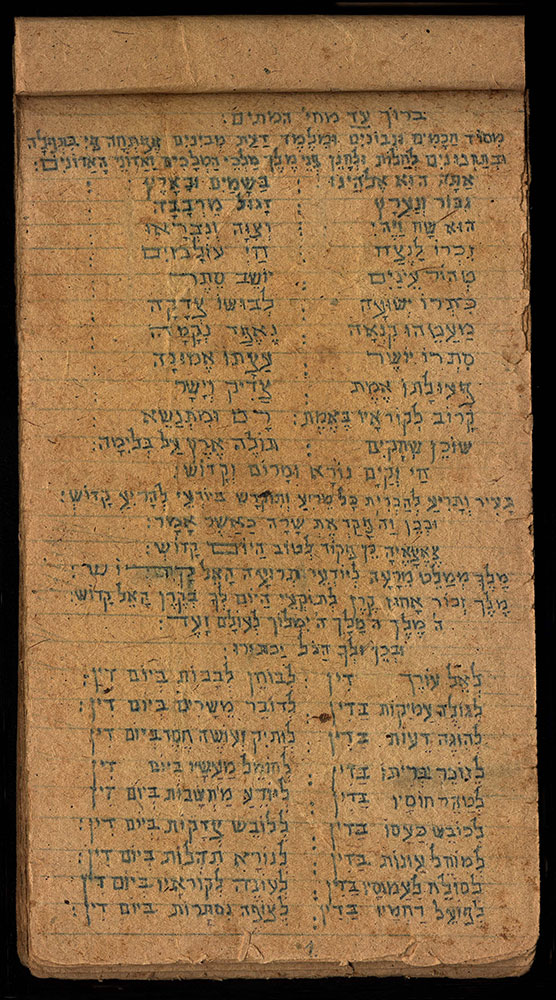 ברוך עד מחי׳ המתים:
מסוד חכמים ונבונים ומלמד דעת מבינים אפתחה פי בתפלה
ובתחנונים לחלות ולחנן פני מלך מלכי המלכים ואדוני האדונים:
אתה הוא אלהינו : בשמים ובארץ
גבור ונערץ : דגול מרבבה
הוא שח ויהי : וצוה ונבראו
זכרו לנצח : חי עולמים
טהור עינים : יושב סתר
כתרו ישועה : לבושו צדקה
מעטהו קנאה : נאפד נקמה
סתרו יושר : עצתו אמונה
פעולתו אמת : צדיק וישר
קרוב לקוראיו באמת : רם ומתנשא
שוכן שחקים : תולה ארץ על בלימה:
חי וקים נורא ומרום וקדוש:
תעיר ותריע להכרית כל מריע ותוקדש ביודעי להריע קדוש:
ובכן וה׳ פקד את שרה כאשר אמר:
צאצאיה כן פקוד לטוב היום קדוש:
מלך ממלט מרעה ליודעי תרועה האל קדוש:
מלך זכור אחוז קרן לתוקעי היום לך בקרן האל קדוש:
ה׳ מלך ה׳ מלך ה׳ ימלוך לעולם ועד:
ובכן לך הכל יכתירו:
לאל עורך דין : לבוחן לבבות ביום דין:
לגולה עמוקות בדין : לדובר משרים ביום דין:
להוגה דעות בדין : לותיק ועושה חסד ביום דין:
לזוכר בריתו בדין : לחומל מעשיו ביום דין
לטהר חוסיו בדין : ליודע מחשבות ביום דין
לכובש כעסו בדין : ללובש צדקות ביום דין:
למוחל עונות בדין : לנורא תהלות ביום דין:
לסולח לעמוסיו בדין : לעונה לקוראיו ביום דין
לפועל רחמיו בדין : לצופה נסתרות ביום דין: